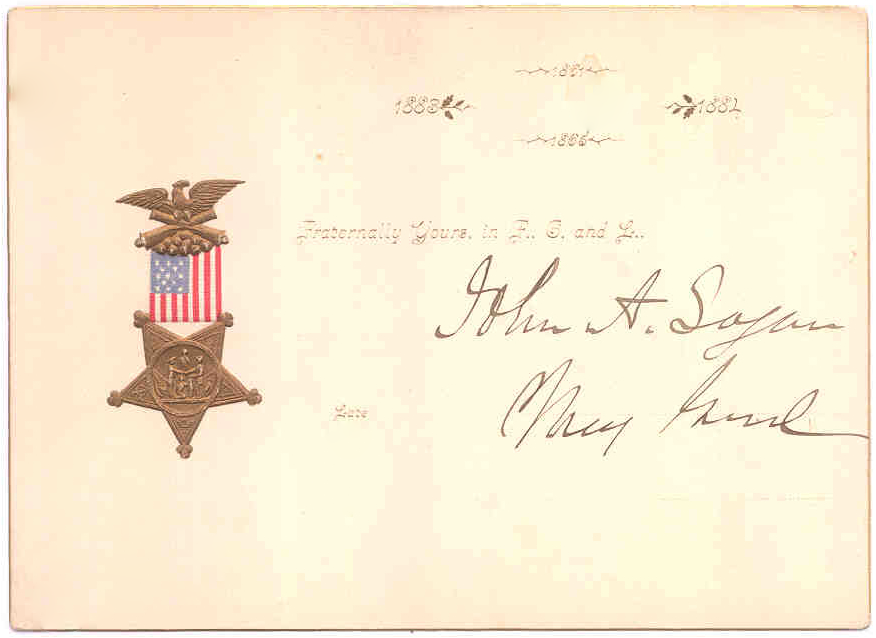 1861
1883 1884
1865
Fraternally Yours, in F., C. and L.,
John A. Logan
Late Maj Genl